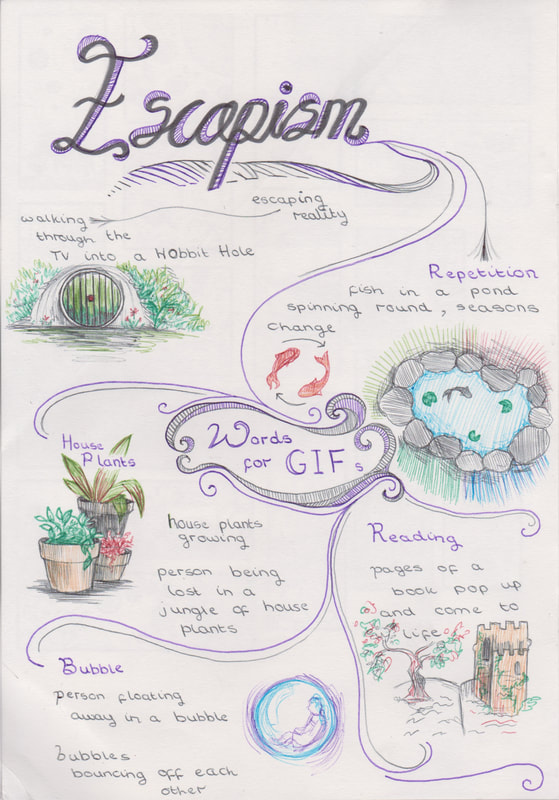 Escapism
escaping
reality
walking
through the
TV into a Hobbit Hole
Repetition
fish in a pond
spinning round, seasons
change
Words
for GIFs
House
Plants
house plants
growing
person being
lost in a
jungle of house
plants
Reading
pages of a
book pop up
and come to
life
Bubble
person floating
away in a bubble
bubbles
bouncing off each
other